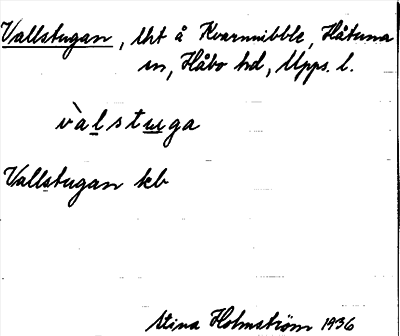 Vallstugan, lht å Kvarnnibble, Håtuna
sn, Håbo hd, Upps. l.
vàlstuga
Vallstugan kb
Stina Holmström 1936